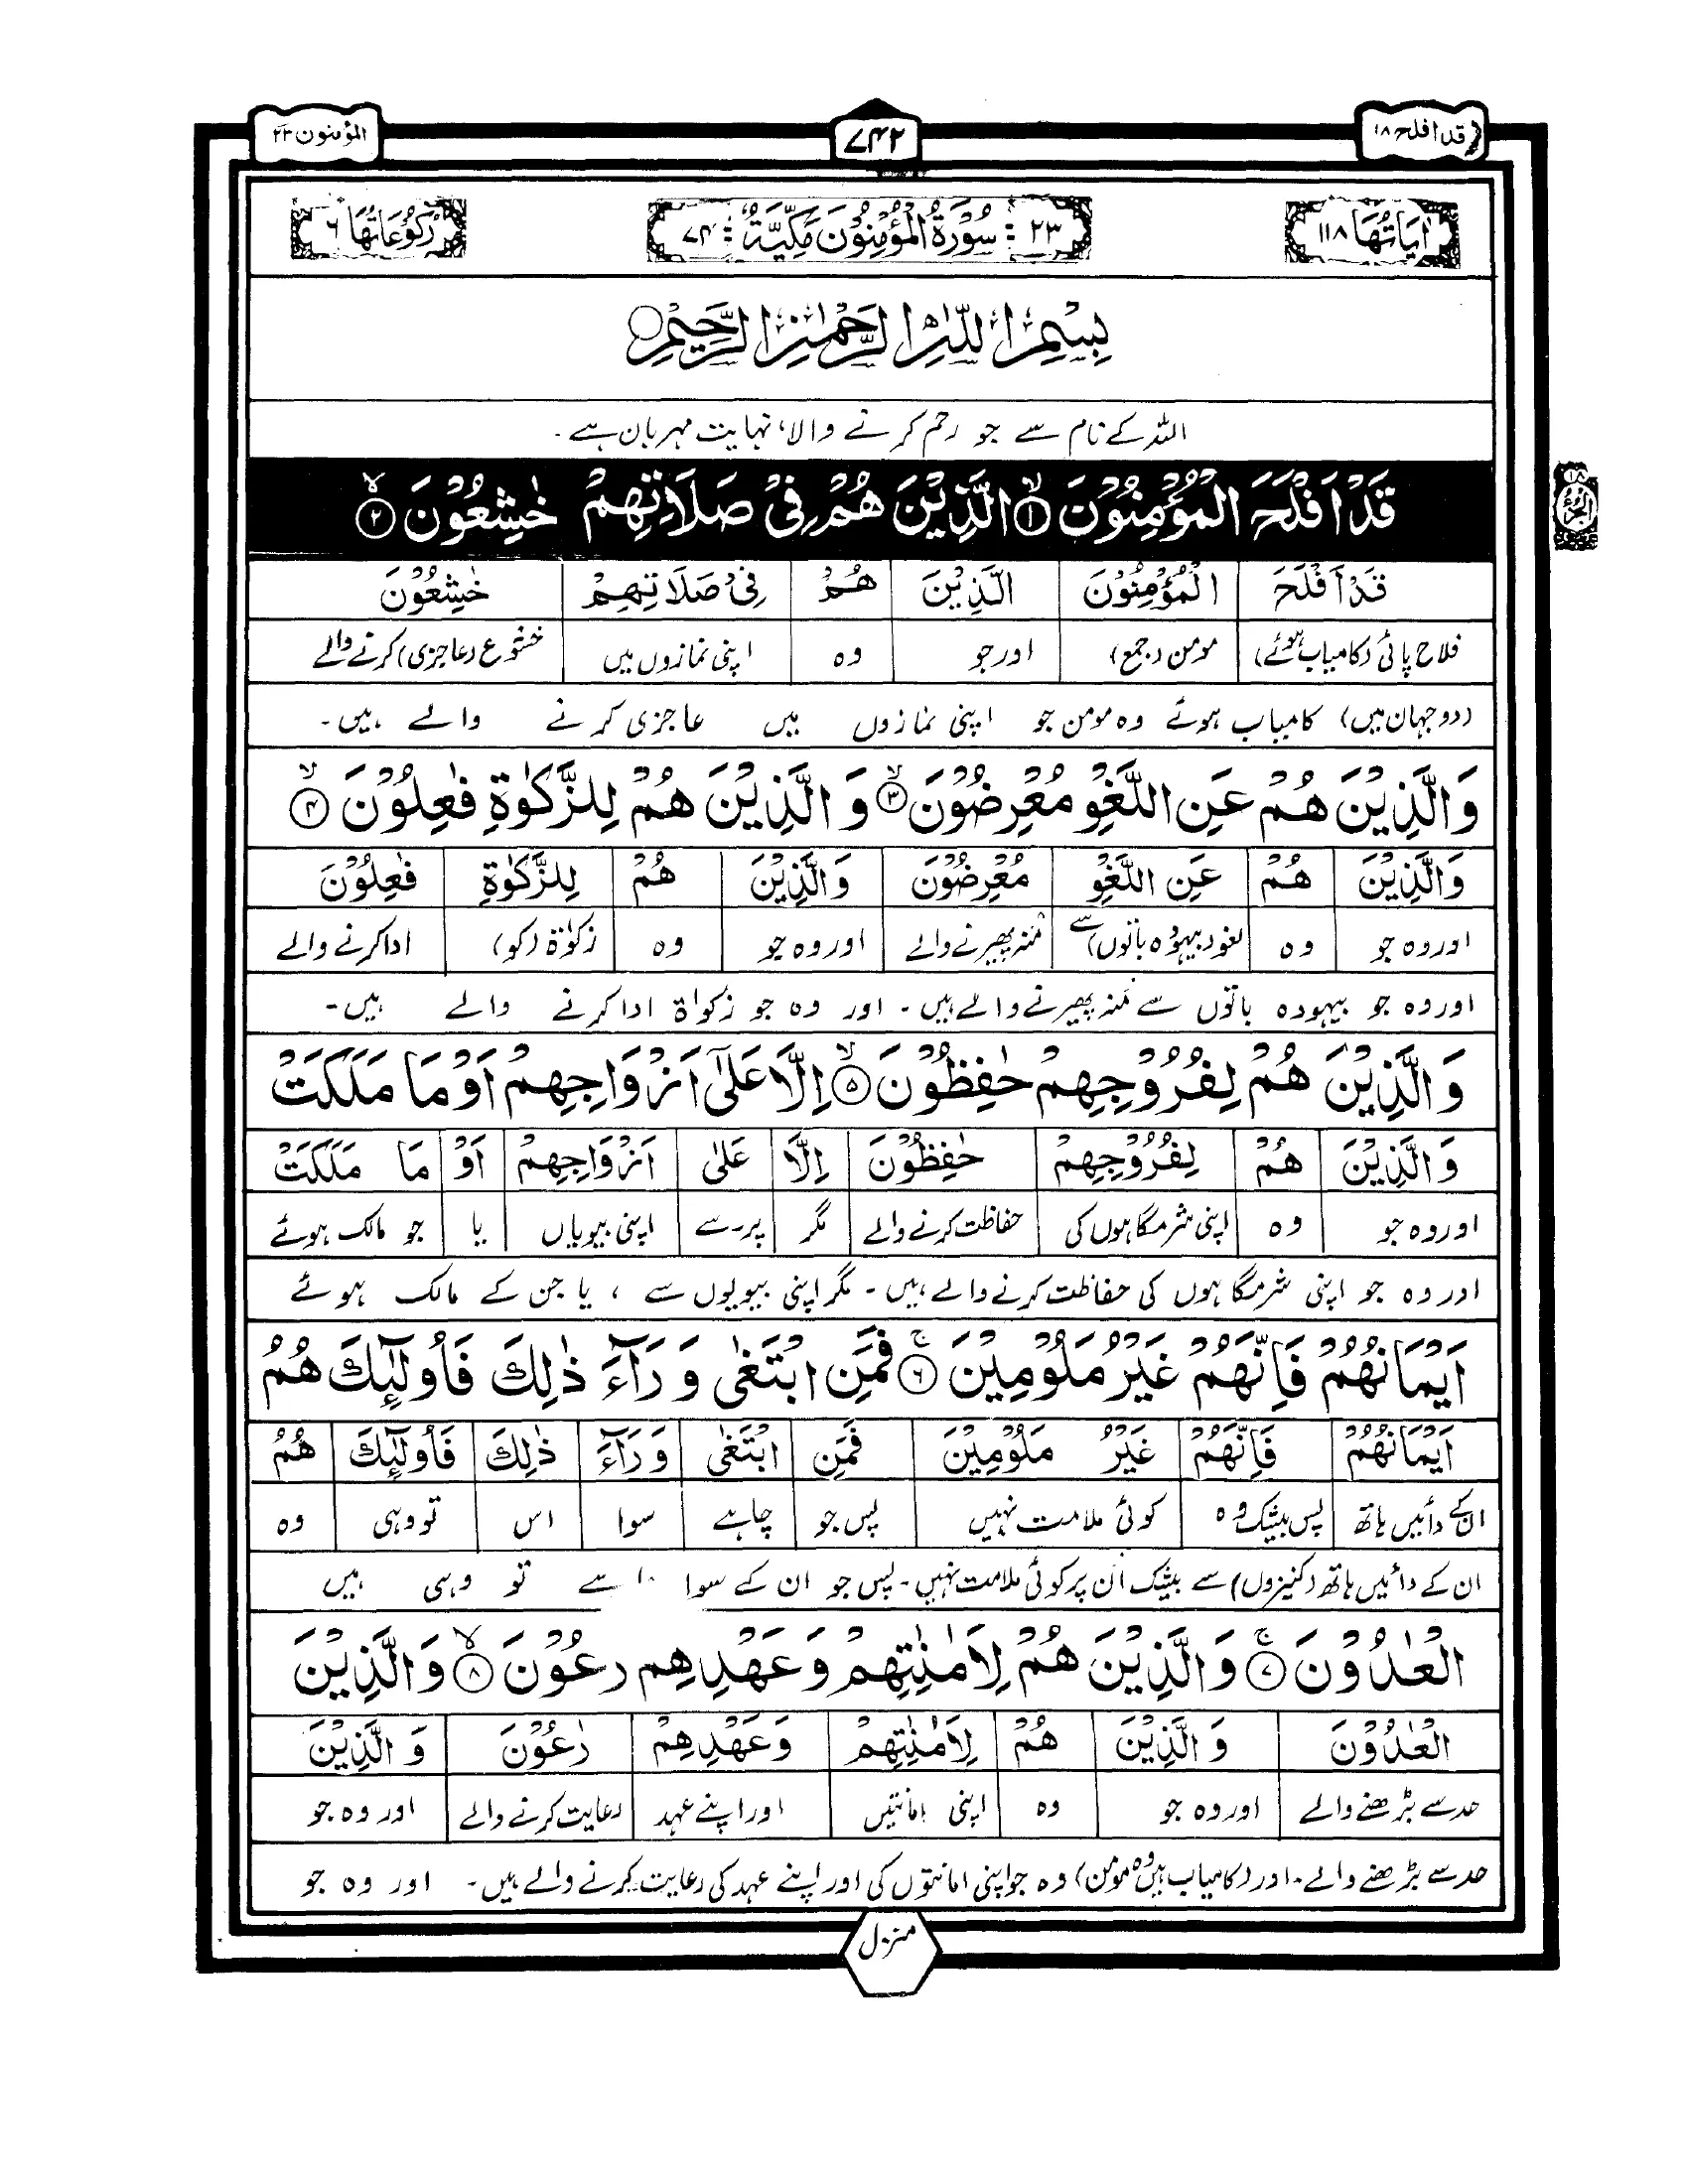 قد افلح ۱۸
۷۴۲
المؤمنون ۲۳
اٰيَاتُهَا ۱۱۸
۲۳ سُوْرَةُ الْمُؤْمِنُوْنَ مَكِّيَّةٌ ۷۴
رُكُوْعَاتُهَا ۶
بِسْمِ اللّٰهِ الرَّحْمٰنِ الرَّحِيْمِ
اللہ کے نام سے جو رحم کرنے والا، نہایت مہربان ہے۔
قَدْ اَفْلَحَ الْمُؤْمِنُوْنَ ۱ الَّذِيْنَ هُمْ فِيْ صَلَاتِهِمْ خٰشِعُوْنَ ۲
قَدْ اَفْلَحَ | الْمُؤْمِنُوْنَ | الَّذِيْنَ | هُمْ | فِيْ صَلَاتِهِمْ | خٰشِعُوْنَ
فلاح پائی (کامیاب ہوئے) | مومن (جمع) | اور جو | وہ | اپنی نمازوں میں | خشوع (عاجزی) کرنے والے
(دو جہان میں) کامیاب ہوئے وہ مومن جو اپنی نمازوں میں عاجزی کرنے والے ہیں۔
وَالَّذِيْنَ هُمْ عَنِ اللَّغْوِ مُعْرِضُوْنَ ۳ وَالَّذِيْنَ هُمْ لِلزَّكٰوةِ فٰعِلُوْنَ ۴
وَالَّذِيْنَ | هُمْ | عَنِ اللَّغْوِ | مُعْرِضُوْنَ | وَالَّذِيْنَ | هُمْ | لِلزَّكٰوةِ | فٰعِلُوْنَ
اور وہ جو | وہ | لغو (بیہودہ باتوں) سے | مُنہ پھیرنے والے | اور وہ جو | وہ | زکوٰۃ (کو) | ادا کرنے والے
اور وہ جو بیہودہ باتوں سے مُنہ پھیرنے والے ہیں۔ اور وہ جو زکواۃ ادا کرنے والے ہیں۔
وَالَّذِيْنَ هُمْ لِفُرُوْجِهِمْ حٰفِظُوْنَ ۵ اِلَّا عَلٰٓى اَزْوَاجِهِمْ اَوْ مَا مَلَكَتْ
وَالَّذِيْنَ | هُمْ | لِفُرُوْجِهِمْ | حٰفِظُوْنَ | اِلَّا | عَلٰى | اَزْوَاجِهِمْ | اَوْ | مَا مَلَكَتْ
اور وہ جو | وہ | اپنی شرمگاہوں کی | حفاظت کرنے والے | مگر | پر۔سے | اپنی بیویاں | یا | جو مالک ہوئے
اور وہ جو اپنی شرمگاہوں کی حفاظت کرنے والے ہیں۔ مگر اپنی بیویوں سے ، یا جن کے مالک ہوئے
اَيْمَانُهُمْ فَاِنَّهُمْ غَيْرُ مَلُوْمِيْنَ ۶ فَمَنِ ابْتَغٰى وَرَآءَ ذٰلِكَ فَاُولٰٓئِكَ هُمُ
اَيْمَانُهُمْ | فَاِنَّهُمْ | غَيْرُ مَلُوْمِيْنَ | فَمَنِ | ابْتَغٰى | وَرَآءَ | ذٰلِكَ | فَاُولٰٓئِكَ | هُمُ
ان کے دائیں ہاتھ | پس بیشک وہ | کوئی ملامت نہیں | پس جو | چاہے | سوا | اس | تو وہی | وہ
ان کے دائیں ہاتھ (کنیزوں) سے بیشک اُن پر کوئی ملامت نہیں۔ پس جو ان کے سوا تو وہی ہیں
الْعٰدُوْنَ ۷ وَالَّذِيْنَ هُمْ لِاَمٰنٰتِهِمْ وَعَهْدِهِمْ رٰعُوْنَ ۸ وَالَّذِيْنَ
الْعٰدُوْنَ | وَالَّذِيْنَ | هُمْ | لِاَمٰنٰتِهِمْ | وَعَهْدِهِمْ | رٰعُوْنَ | وَالَّذِيْنَ
حد سے بڑھنے والے | اور وہ جو | وہ | اپنی امانتیں | اور اپنے عہد | رعایت کرنے والے | اور وہ جو
حد سے بڑھنے والے۔ اور (کامیاب ہیں وہ مومن) وہ جو اپنی امانتوں کی اور اپنے عہد کی رعایت کرنے والے ہیں۔ اور وہ جو
منزل